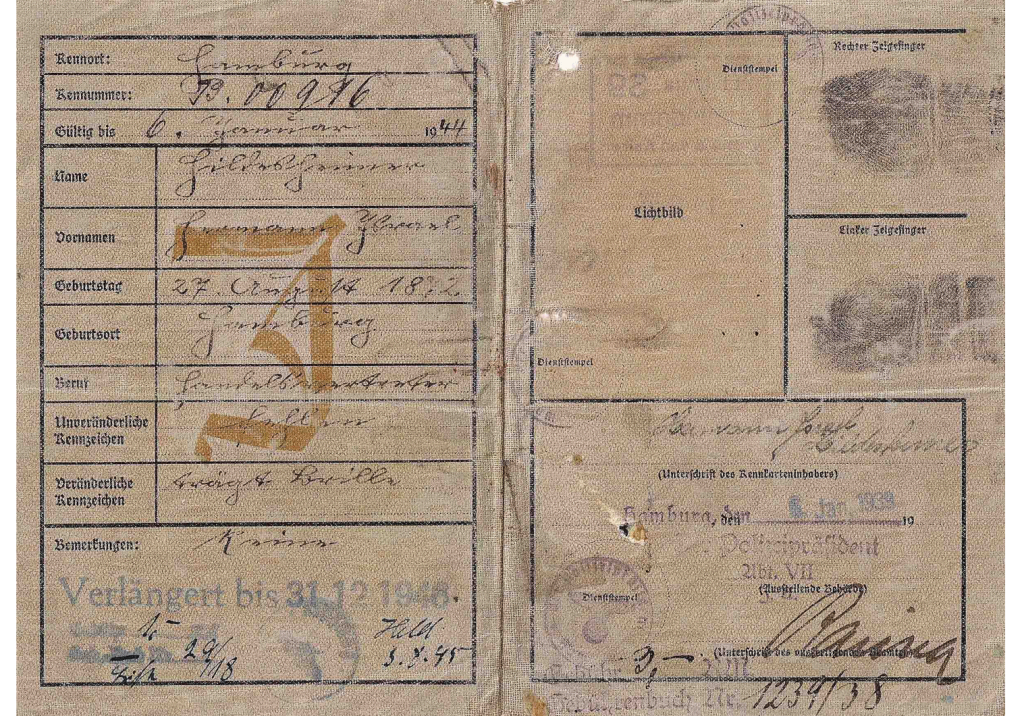 Kennort: Hamburg
Kennummer: B. 00916
Gültig bis 6. Januar 1944
Name Hildesheimer
Vornamen Hermann Israel
Geburtstag 27. August 1872
Geburtsort Hamburg
Beruf Handelsvertreter
Unveränderliche Kennzeichen fehlen
Veränderliche Kennzeichen trägt Brille
Bemerkungen: Keine
J
Verlängert bis 31.12.1946.
29/
Held
Rechter Zeigefinger
Dienststempel
Lichtbild
Linker Zeigefinger
Dienststempel
Hermann Israel
Hildesheimer
(Unterschrift des Kennkarteninhabers)
Hamburg, den den 6. Jan. 1939 19
Polizeipräsident
Abt. VII
(Ausstellende Behörde)
Dienststempel
(Unterschrift des ausfertigenden Beamten)
Gebühr 3,- RM
Gebührenbuch Nr. 1239/38